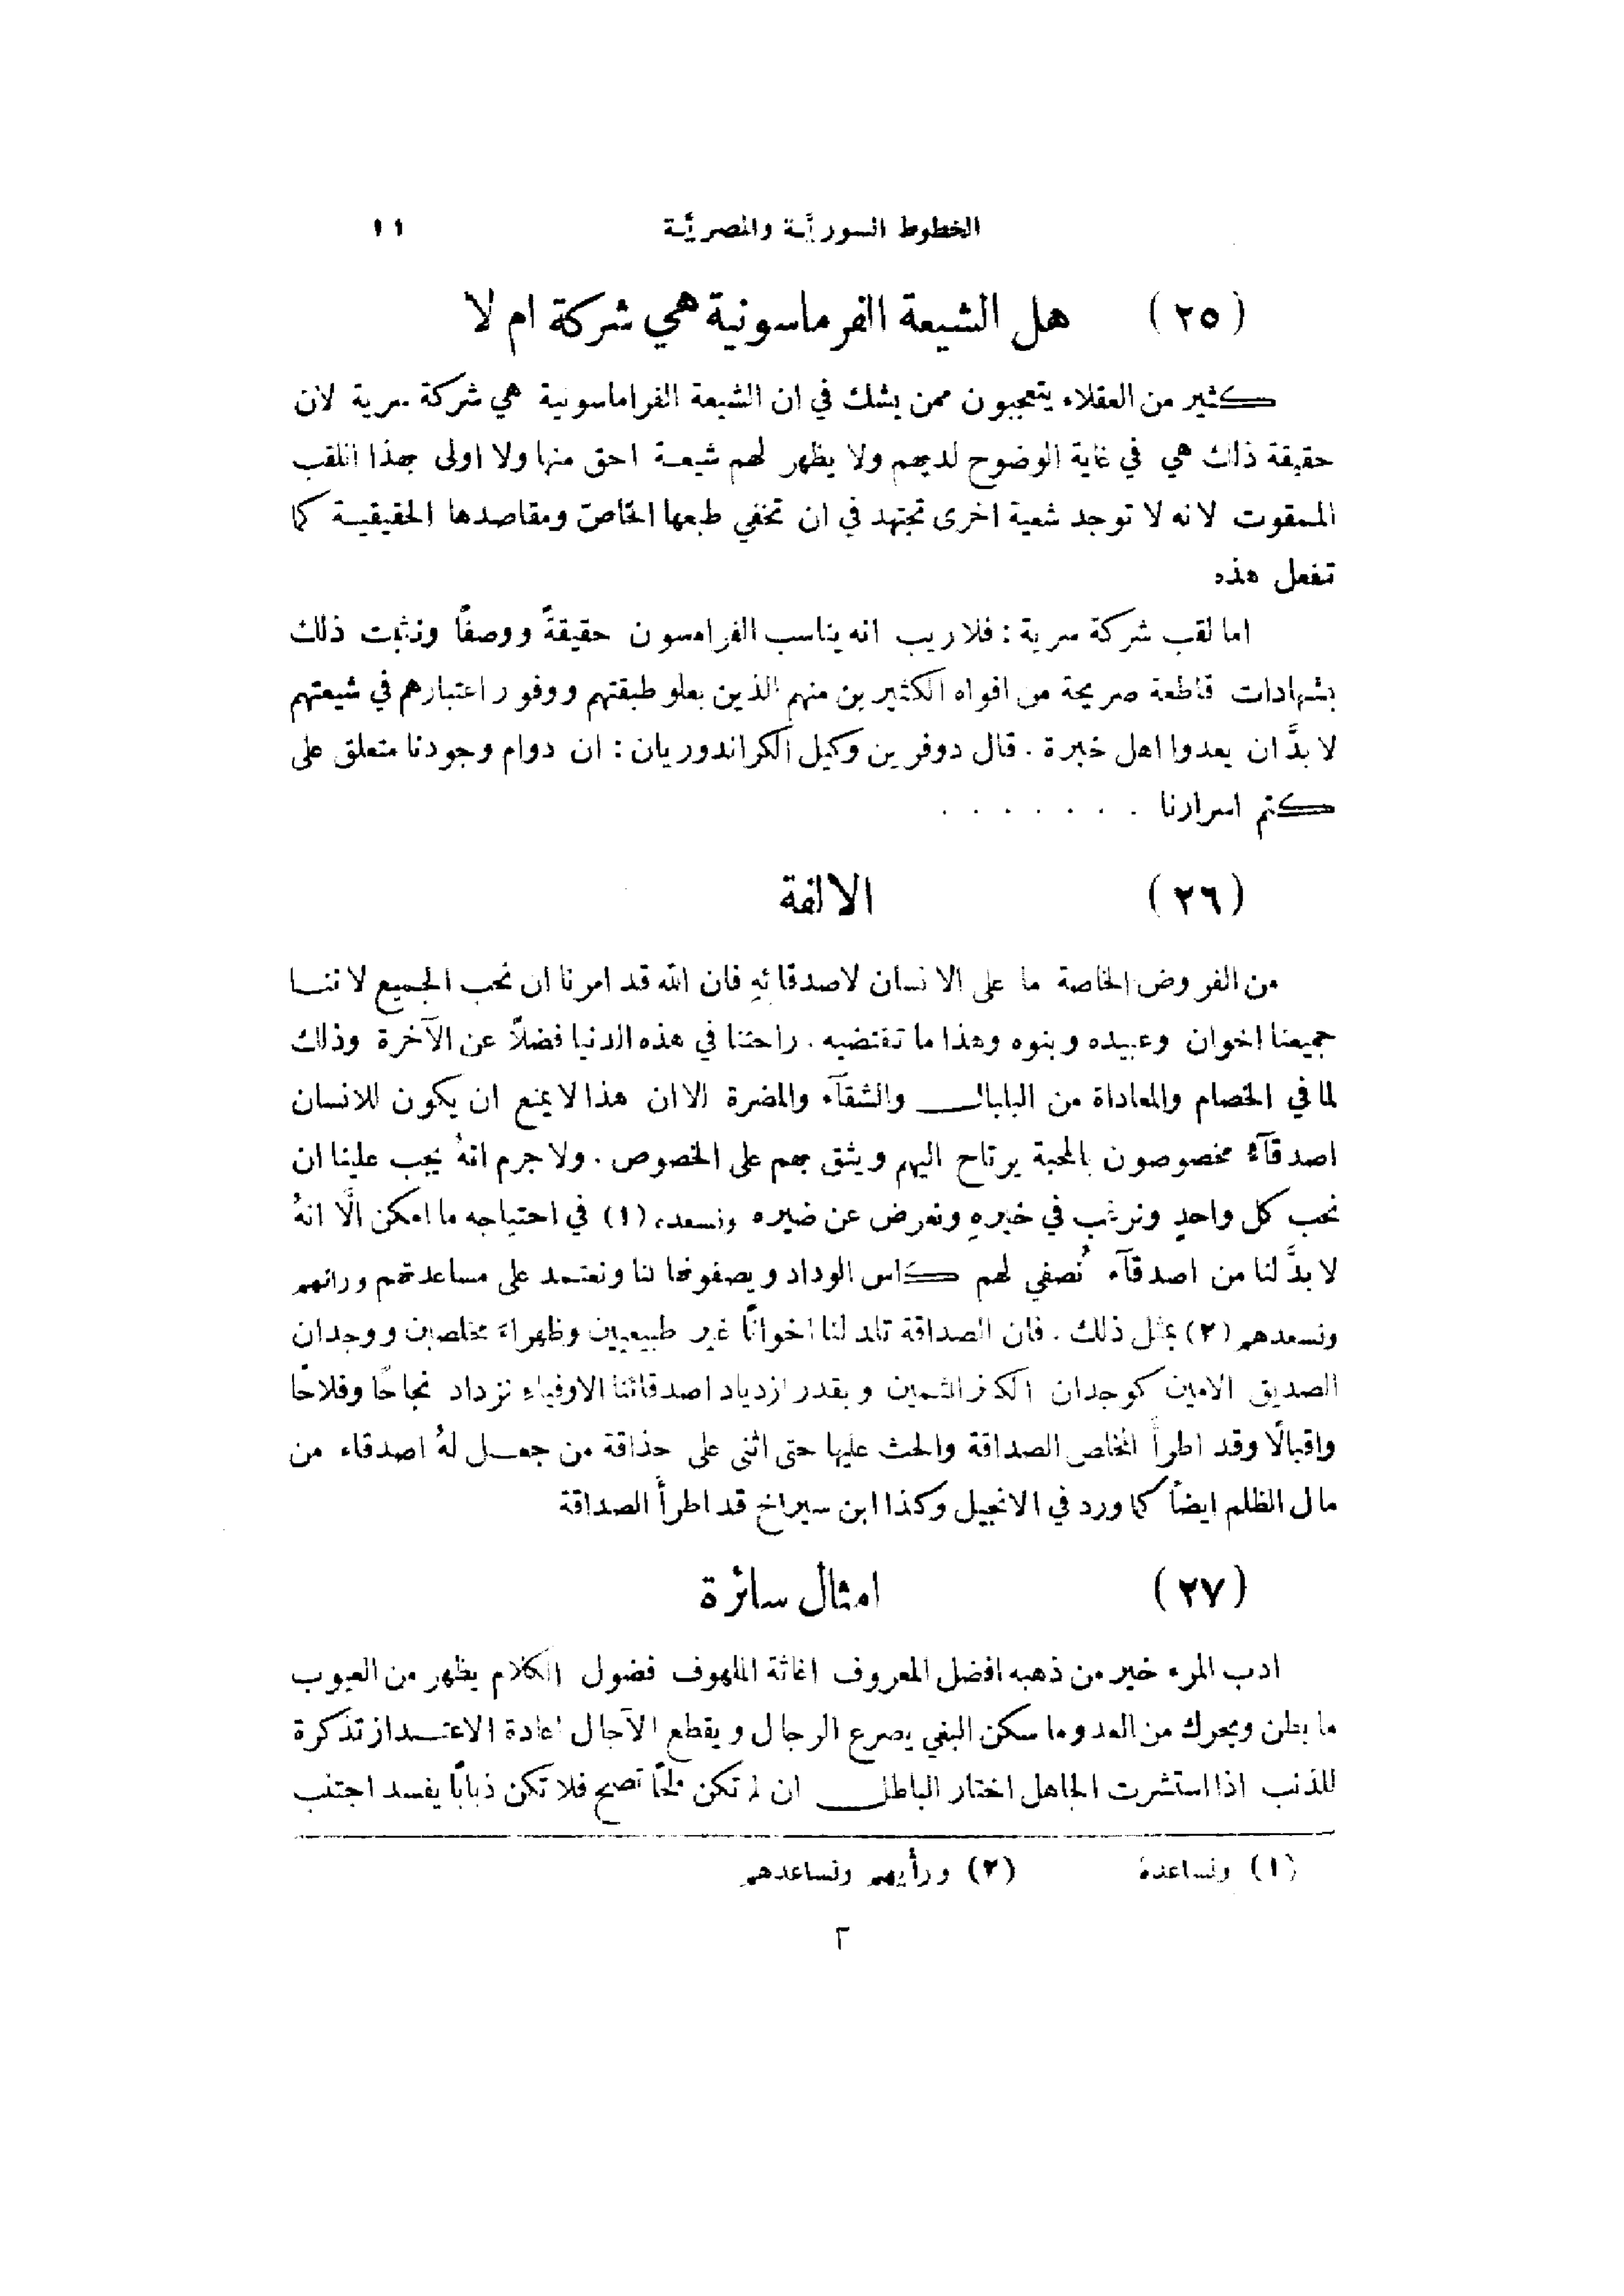 الخطوط السوريَّة والمصريَّة ١١
(٢٥) هل الشيعة الفرماسونية هي شركة ام لا
كثير من العقلاء يتعجبون ممن يشك في ان الشيعة الفراماسونية هي شركة سرية لان
حقيقة ذلك هي في غاية الوضوح لديهم ولا يظهر لهم شيعة احق منها ولا اولى بهذا اللقب
الممقوت لانه لا توجد شعية اخرى تجتهد في ان تخفي طبعها الخاصّ ومقاصدها الحقيقية كما
تفعل هذه
اما لقب شركة سرية : فلا ريب انه يناسب الفرامسون حقيقةً ووصفًا ونثبت ذلك
بشهادات قاطعة صريحة من افواه الكثيرين منهم الذين بعلو طبقتهم ووفور اعتبارهم في شيعتهم
لا بدَّ ان يعدوا اهل خبرة . قال دوفرين وكيل الكراندوريان : ان دوام وجودنا متعلق على
كتم اسرارنا . . . . . . .
(٢٦) الالفة
من الفروض الخاصة ما على الانسان لاصدقائهِ فان الله قد امرنا ان نحب الجميع لاننا
جميعنا اخوان وعبيده وبنوه وهذا ما تقتضيه . راحتنا في هذه الدنيا فضلاً عن الآخرة وذلك
لما في الخصام والمعاداة من البلبال والشقآء والمضرة الا ان هذا لا يمنع ان يكون للانسان
اصدقآء مخصوصون بالمحبة يرتاح اليهم ويثق بهم على الخصوص . ولا جرم انهُ يجب علينا ان
نحب كل واحدٍ ونرغب في خيرهِ ونعرض عن ضيره ونسعده (١) في احتياجه ما امكن الَّا انهُ
لا بدَّ لنا من اصدقآء نُصفي لهم كاس الوداد ويصفونها لنا ونعتمد على مساعدتهم ورائهم
ونسعدهم (٢) بمثل ذلك . فان الصداقة تلد لنا اخوانًا غير طبيعيين وظهراءَ مخلصين ووجدان
الصديق الامين كوجدان الكنز الثمين وبقدر ازدياد اصدقائنا الاوفياء نزداد نجاحًا وفلاحًا
واقبالًا وقد اطرأ المخلص الصداقة والحث عليها حتى اثنى على حذاقة من جعل لهُ اصدقاء من
مال الظلم ايضاً كما ورد في الانجيل وكذا ابن سيراخ قد اطرأ الصداقة
(٢٧) امثال سائرة
ادب المرء خير من ذهبه افضل المعروف اغاثة الملهوف فضول الكلام يظهر من العيوب
ما بطن ويحرك من العدو ما سكن البغي يصرع الرجال ويقطع الآجال اعادة الاعتذار تذكرة
للذنب اذا استشرت الجاهل اختار الباطل ان لم تكن ملحًا تصح فلا تكن ذبابًا يفسد اجتنب
(١) ونساعدهُ (٢) ورأيهم ونساعدهم
٢